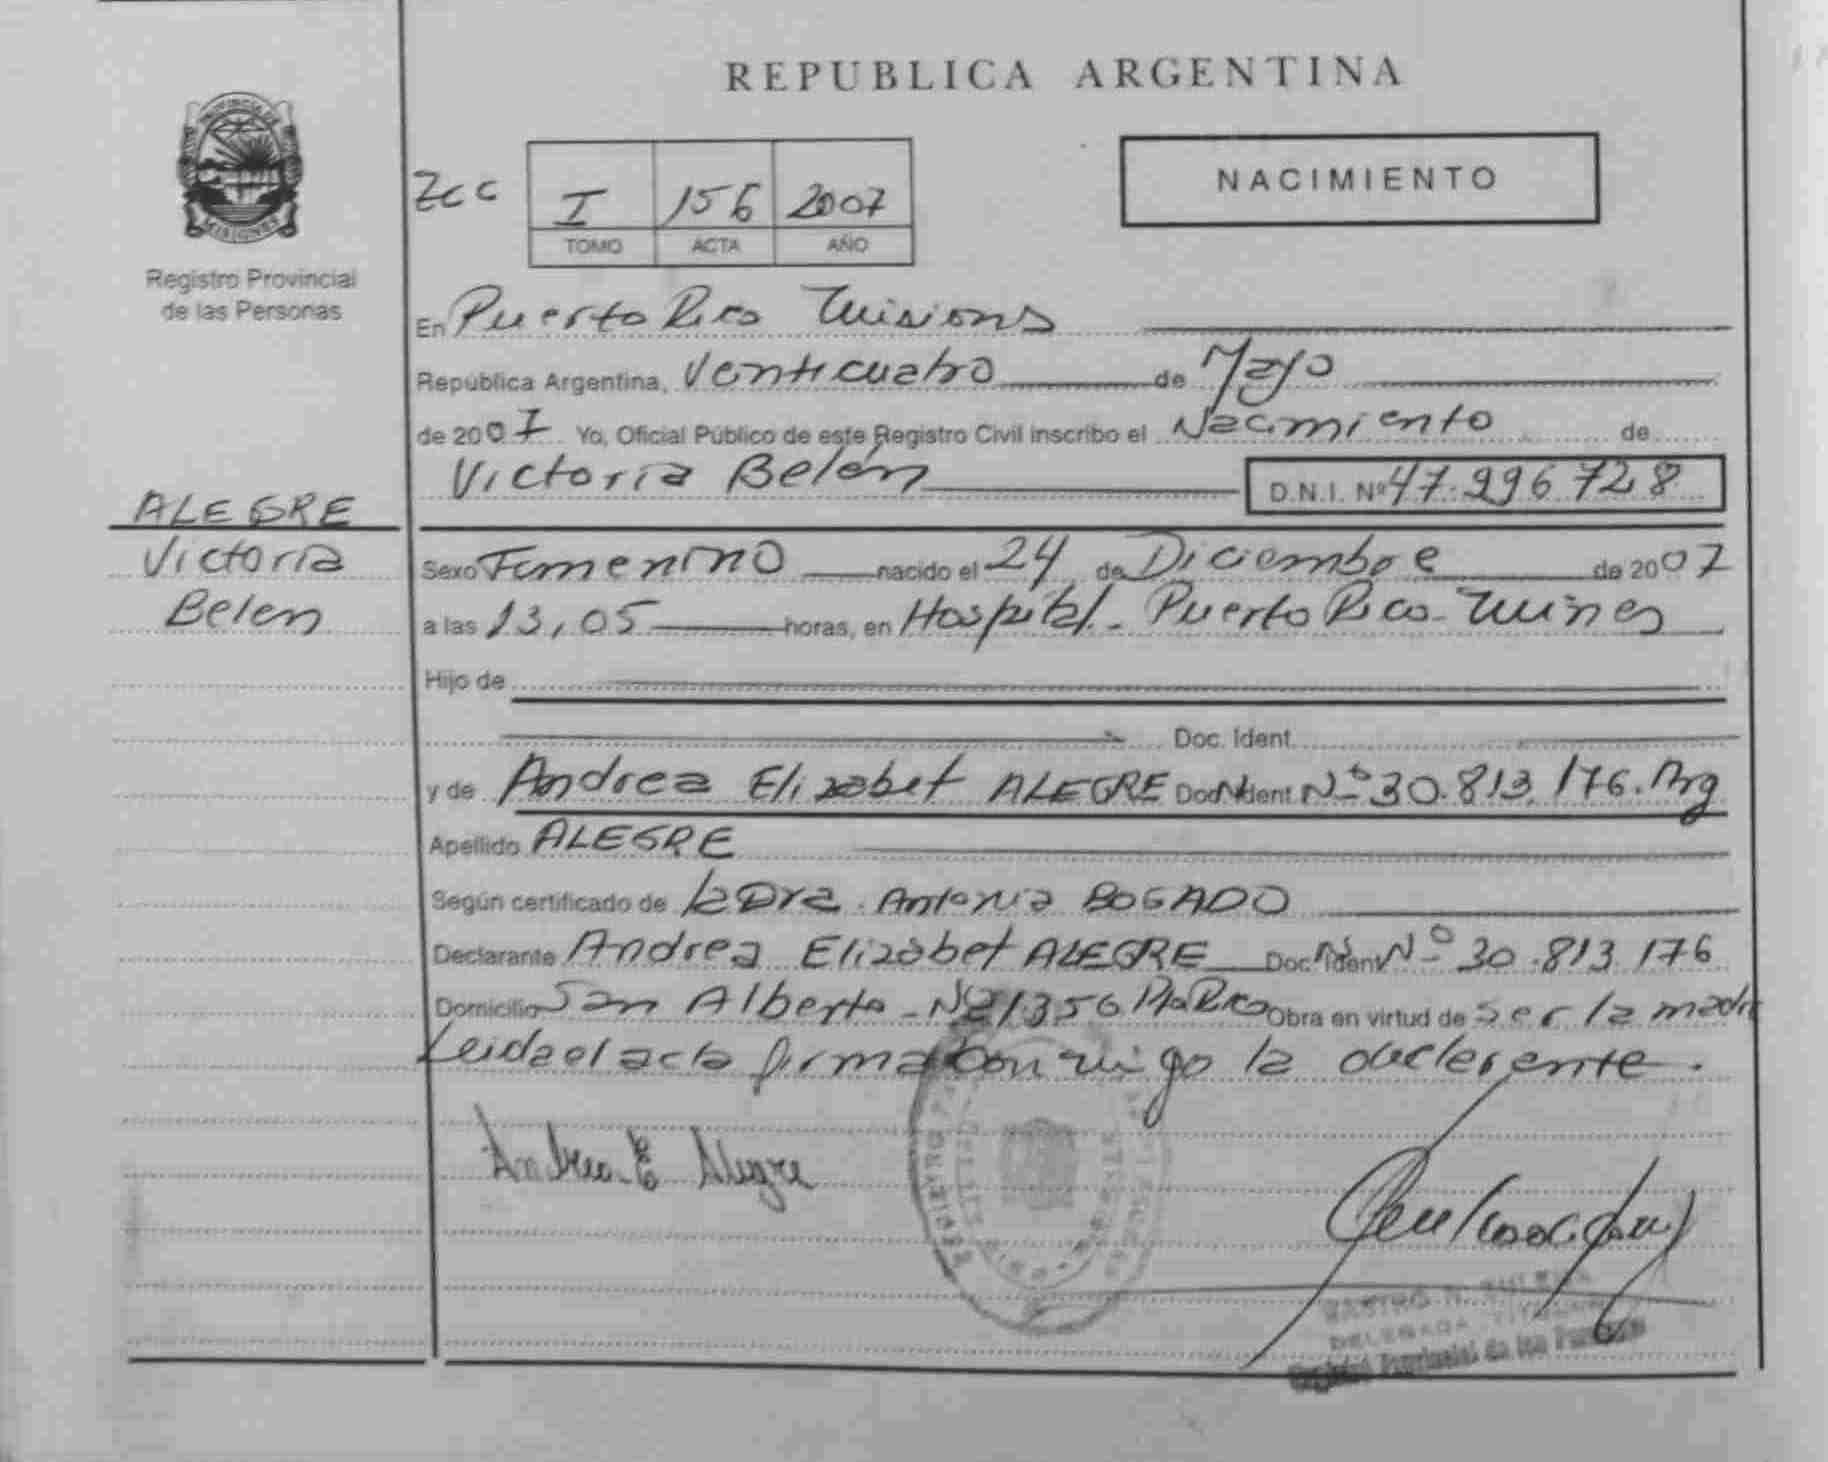 REPUBLICA ARGENTINA
PROVINCIA DE
MISIONES
Registro Provincial
de las Personas
NACIMIENTO
Zcc
I 156 2007
TOMO ACTA AÑO
En Puerto Rico Misiones
República Argentina, Venticuatro de Mayo
de 2007 Yo, Oficial Público de este Registro Civil inscribo el Nacimiento de
Victoria Belén D.N.I. Nº 47.996728
ALEGRE
Victoria
Belen
Sexo Femenino nacido el 24 de Diciembre de 2007
a las 13,05 horas, en Hospital - Puerto Rico - Mnes
Hijo de
Doc. Ident.
y de Andrea Elizabet ALEGRE Doc. Ident. Nº 30.813.176. Arg
Apellido ALEGRE
Según certificado de la Dra. Antonia BOGADO
Declarante Andrea Elizabet ALEGRE Doc. Ident. Nº 30.813.176
Domicilio San Alberto - Nº 1356 Pto Rico Obra en virtud de ser la madre
Leida el acta firma conmigo la declarante.
Andrea E Alegre
DELEGADA
Provincial de las Personas